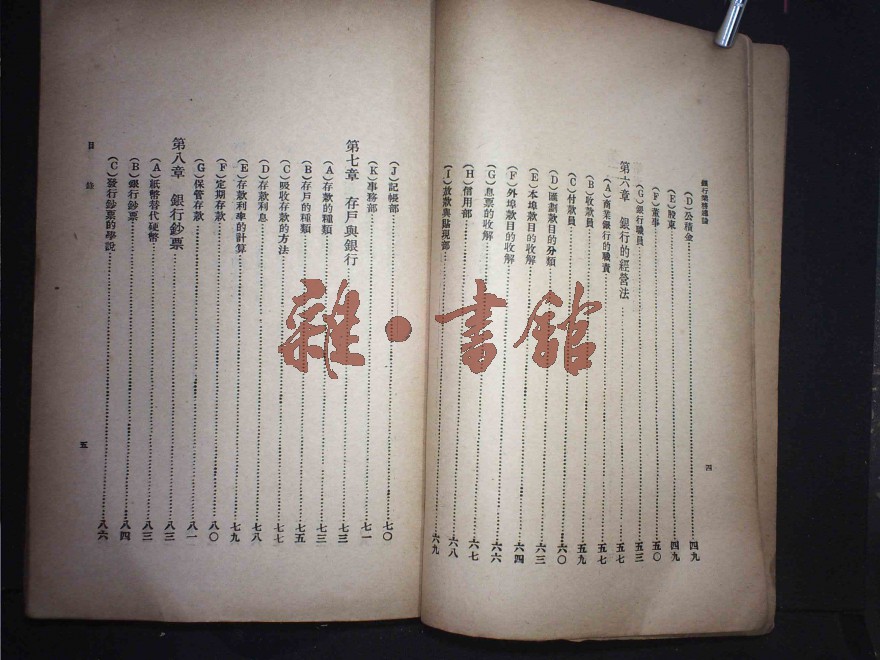 銀行業務通論
(D)公積金 四九
(E)股東 四九
(F)董事 五〇
(G)銀行職員 五三
第六章 銀行的經營法 五七
(A)商業銀行的職責 五七
(B)收款員 五九
(C)付款員 六〇
(D)匯劃款目的分類 六三
(E)本埠款目的收解 六三
(F)外埠款目的收解 六四
(G)息票的收解 六六
(H)信用部 六七
(I)放款與貼現部 六八
六九
四
(J)記帳部 七〇
(K)事務部 七一
第七章 存戶與銀行 七三
(A)存款的種類 七三
(B)存戶的種類 七五
(C)吸收存款的方法 七七
(D)存款利息 七八
(E)存款利率的計算 七九
(F)定期存款 八〇
(G)保管存款 八一
第八章 銀行鈔票 八三
(A)紙幣替代硬幣 八三
(B)銀行鈔票 八四
(C)發行鈔票的學說 八六
目錄
五
雜·書館